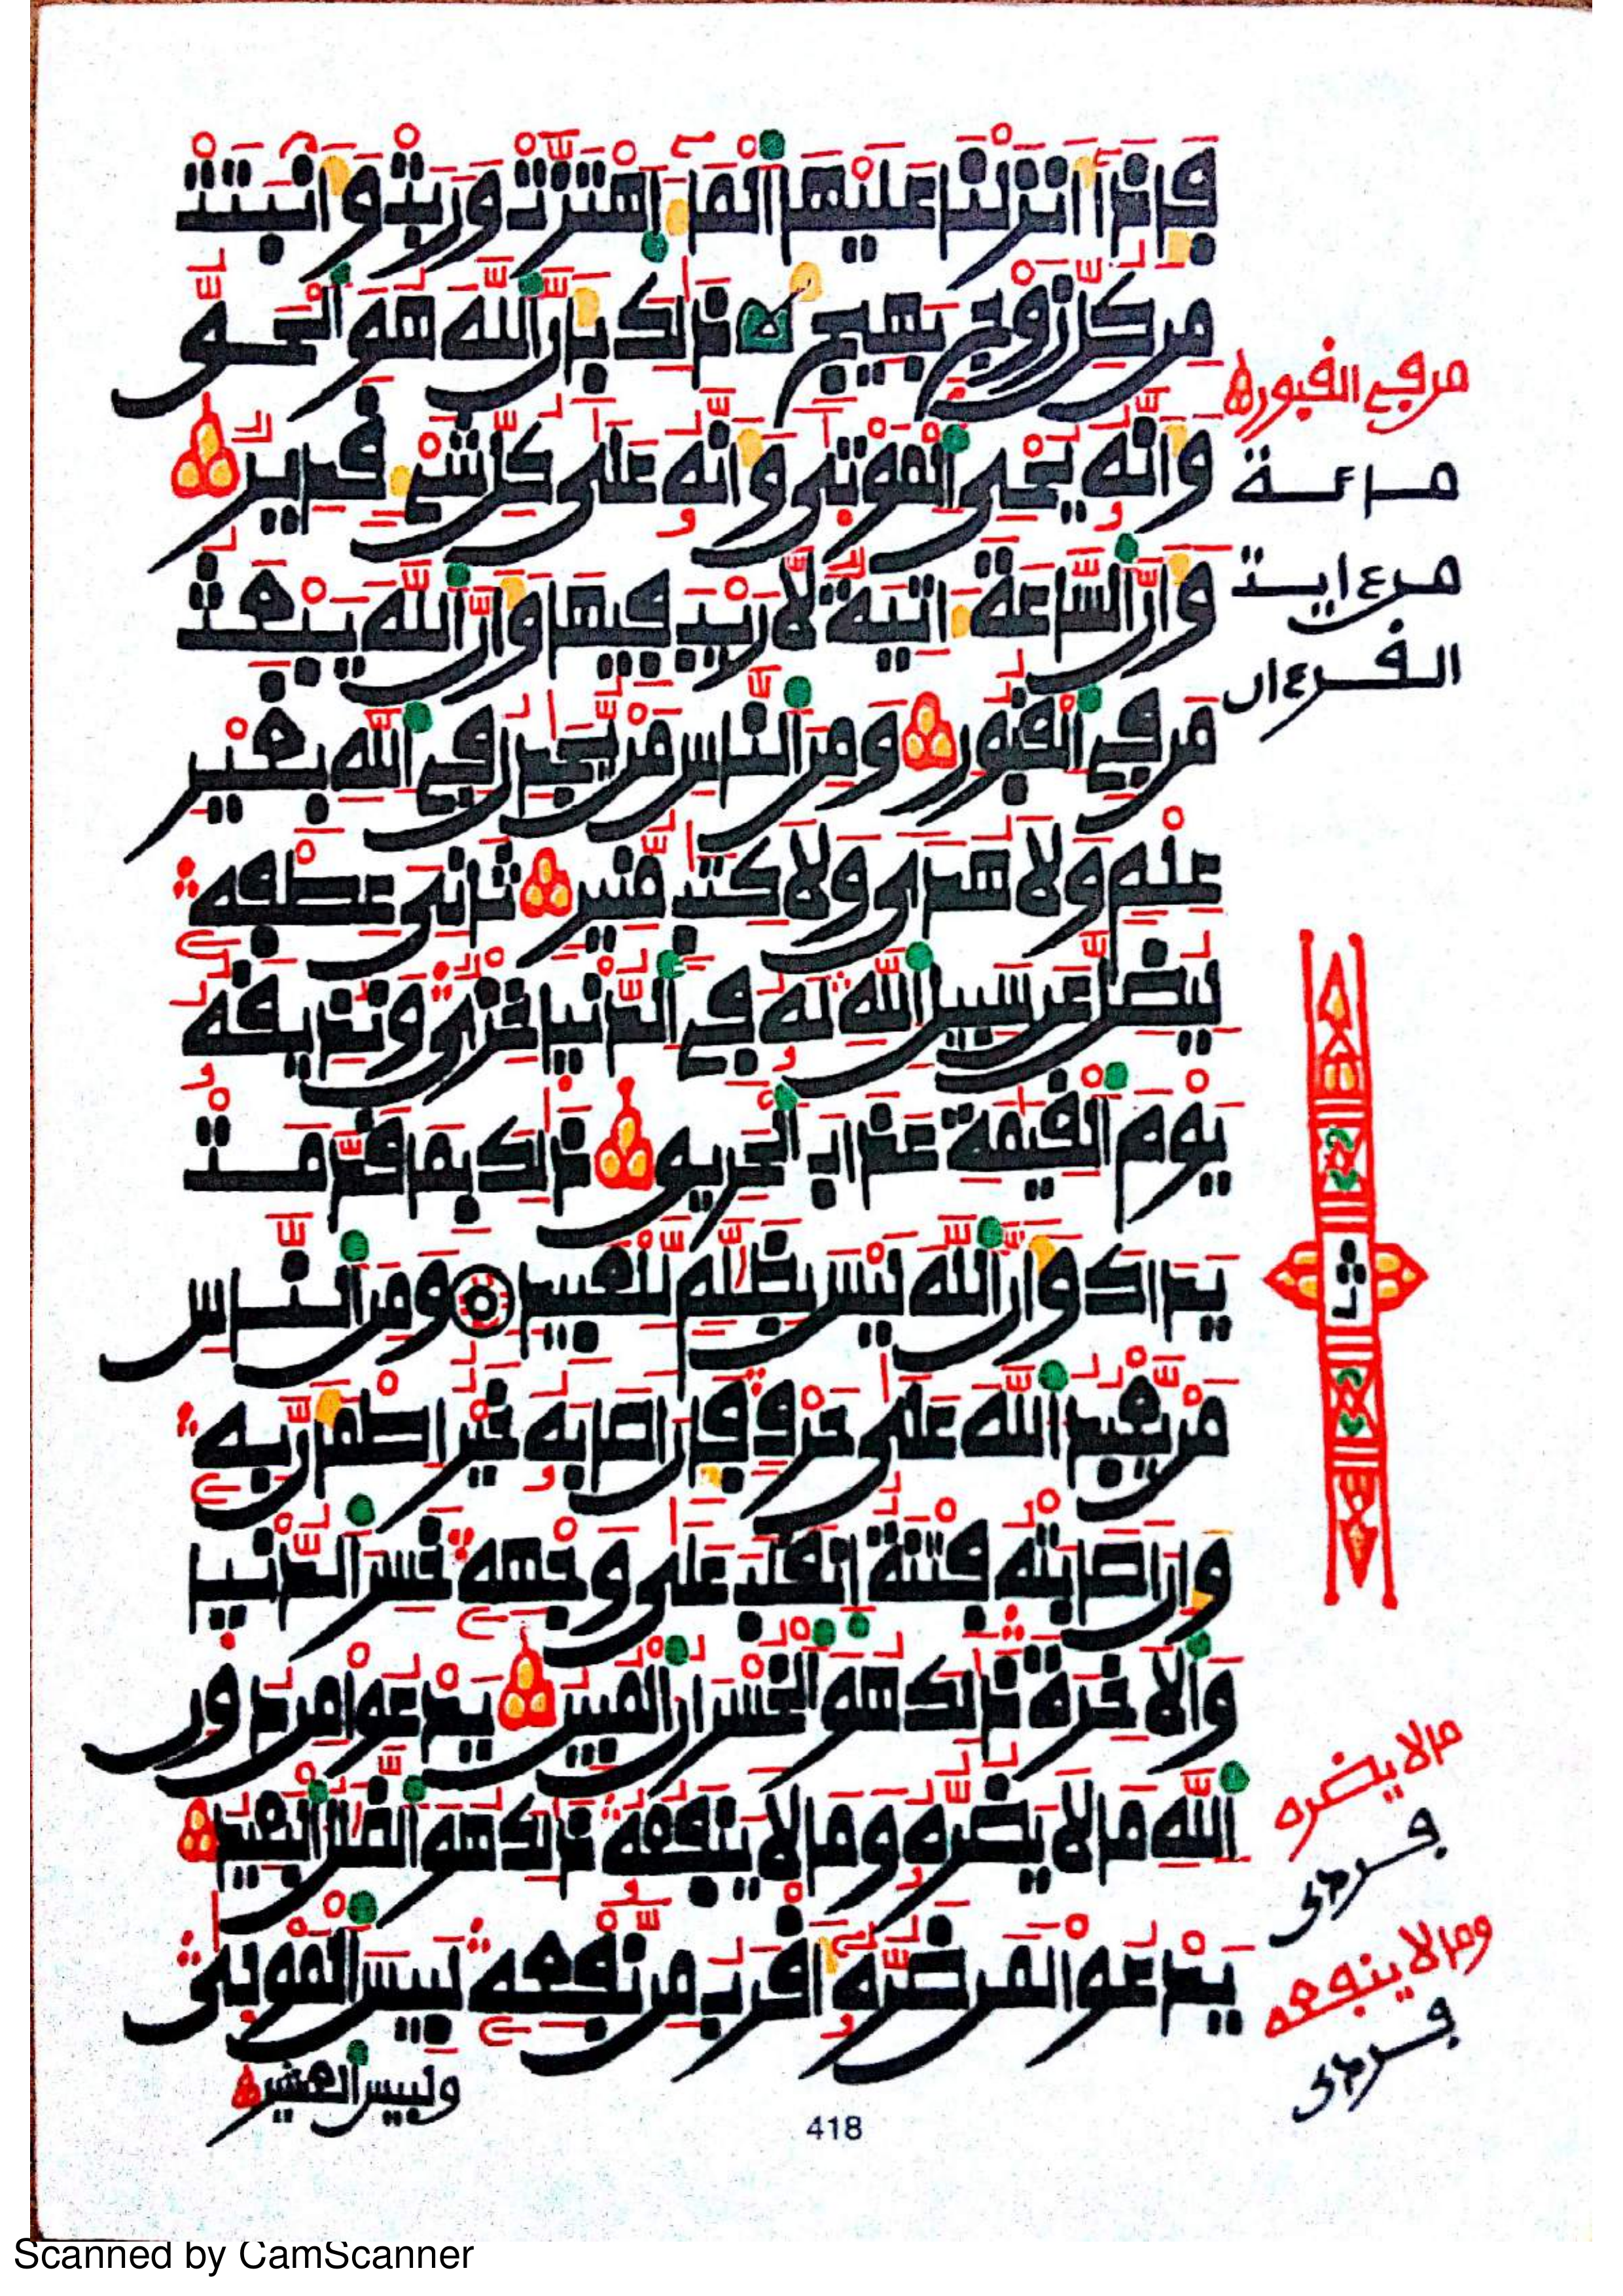 فإذا أنزلنا عليها الماء اهتزت وربت وأنبتت
من كل زوج بهيج ذلك بأن الله هو الحق
وأنه يحي الموتى وأنه على كل شيء قدير
وأن الساعة ءاتية لا ريب فيها وأن الله يبعث
من في القبور ومن الناس من يجدل في الله بغير
علم ولا هدى ولا كتب منير ثاني عطفه
ليضل عن سبيل الله له في الدنيا خزي ونذيقه
يوم القيمة عذاب الحريق ذلك بما قدمت
يداك وأن الله ليس بظلم للعبيد ومن الناس
من يعبد الله على حرف فإن أصابه خير اطمأن به
وإن أصابته فتنة انقلب على وجهه خسر الدنيا
والأخرة ذلك هو الخسران المبين يدعوا من دون
الله ما لا يضره وما لا ينفعه ذلك هو الضلل البعيد
يدعوا لمن ضره أقرب من نفعه لبيس المولى
ولبيس العشير
من في القبور
مائة
من ءايت
القرءان
ما لا يضره
وما لا ينفعه
418
Scanned by CamScanner